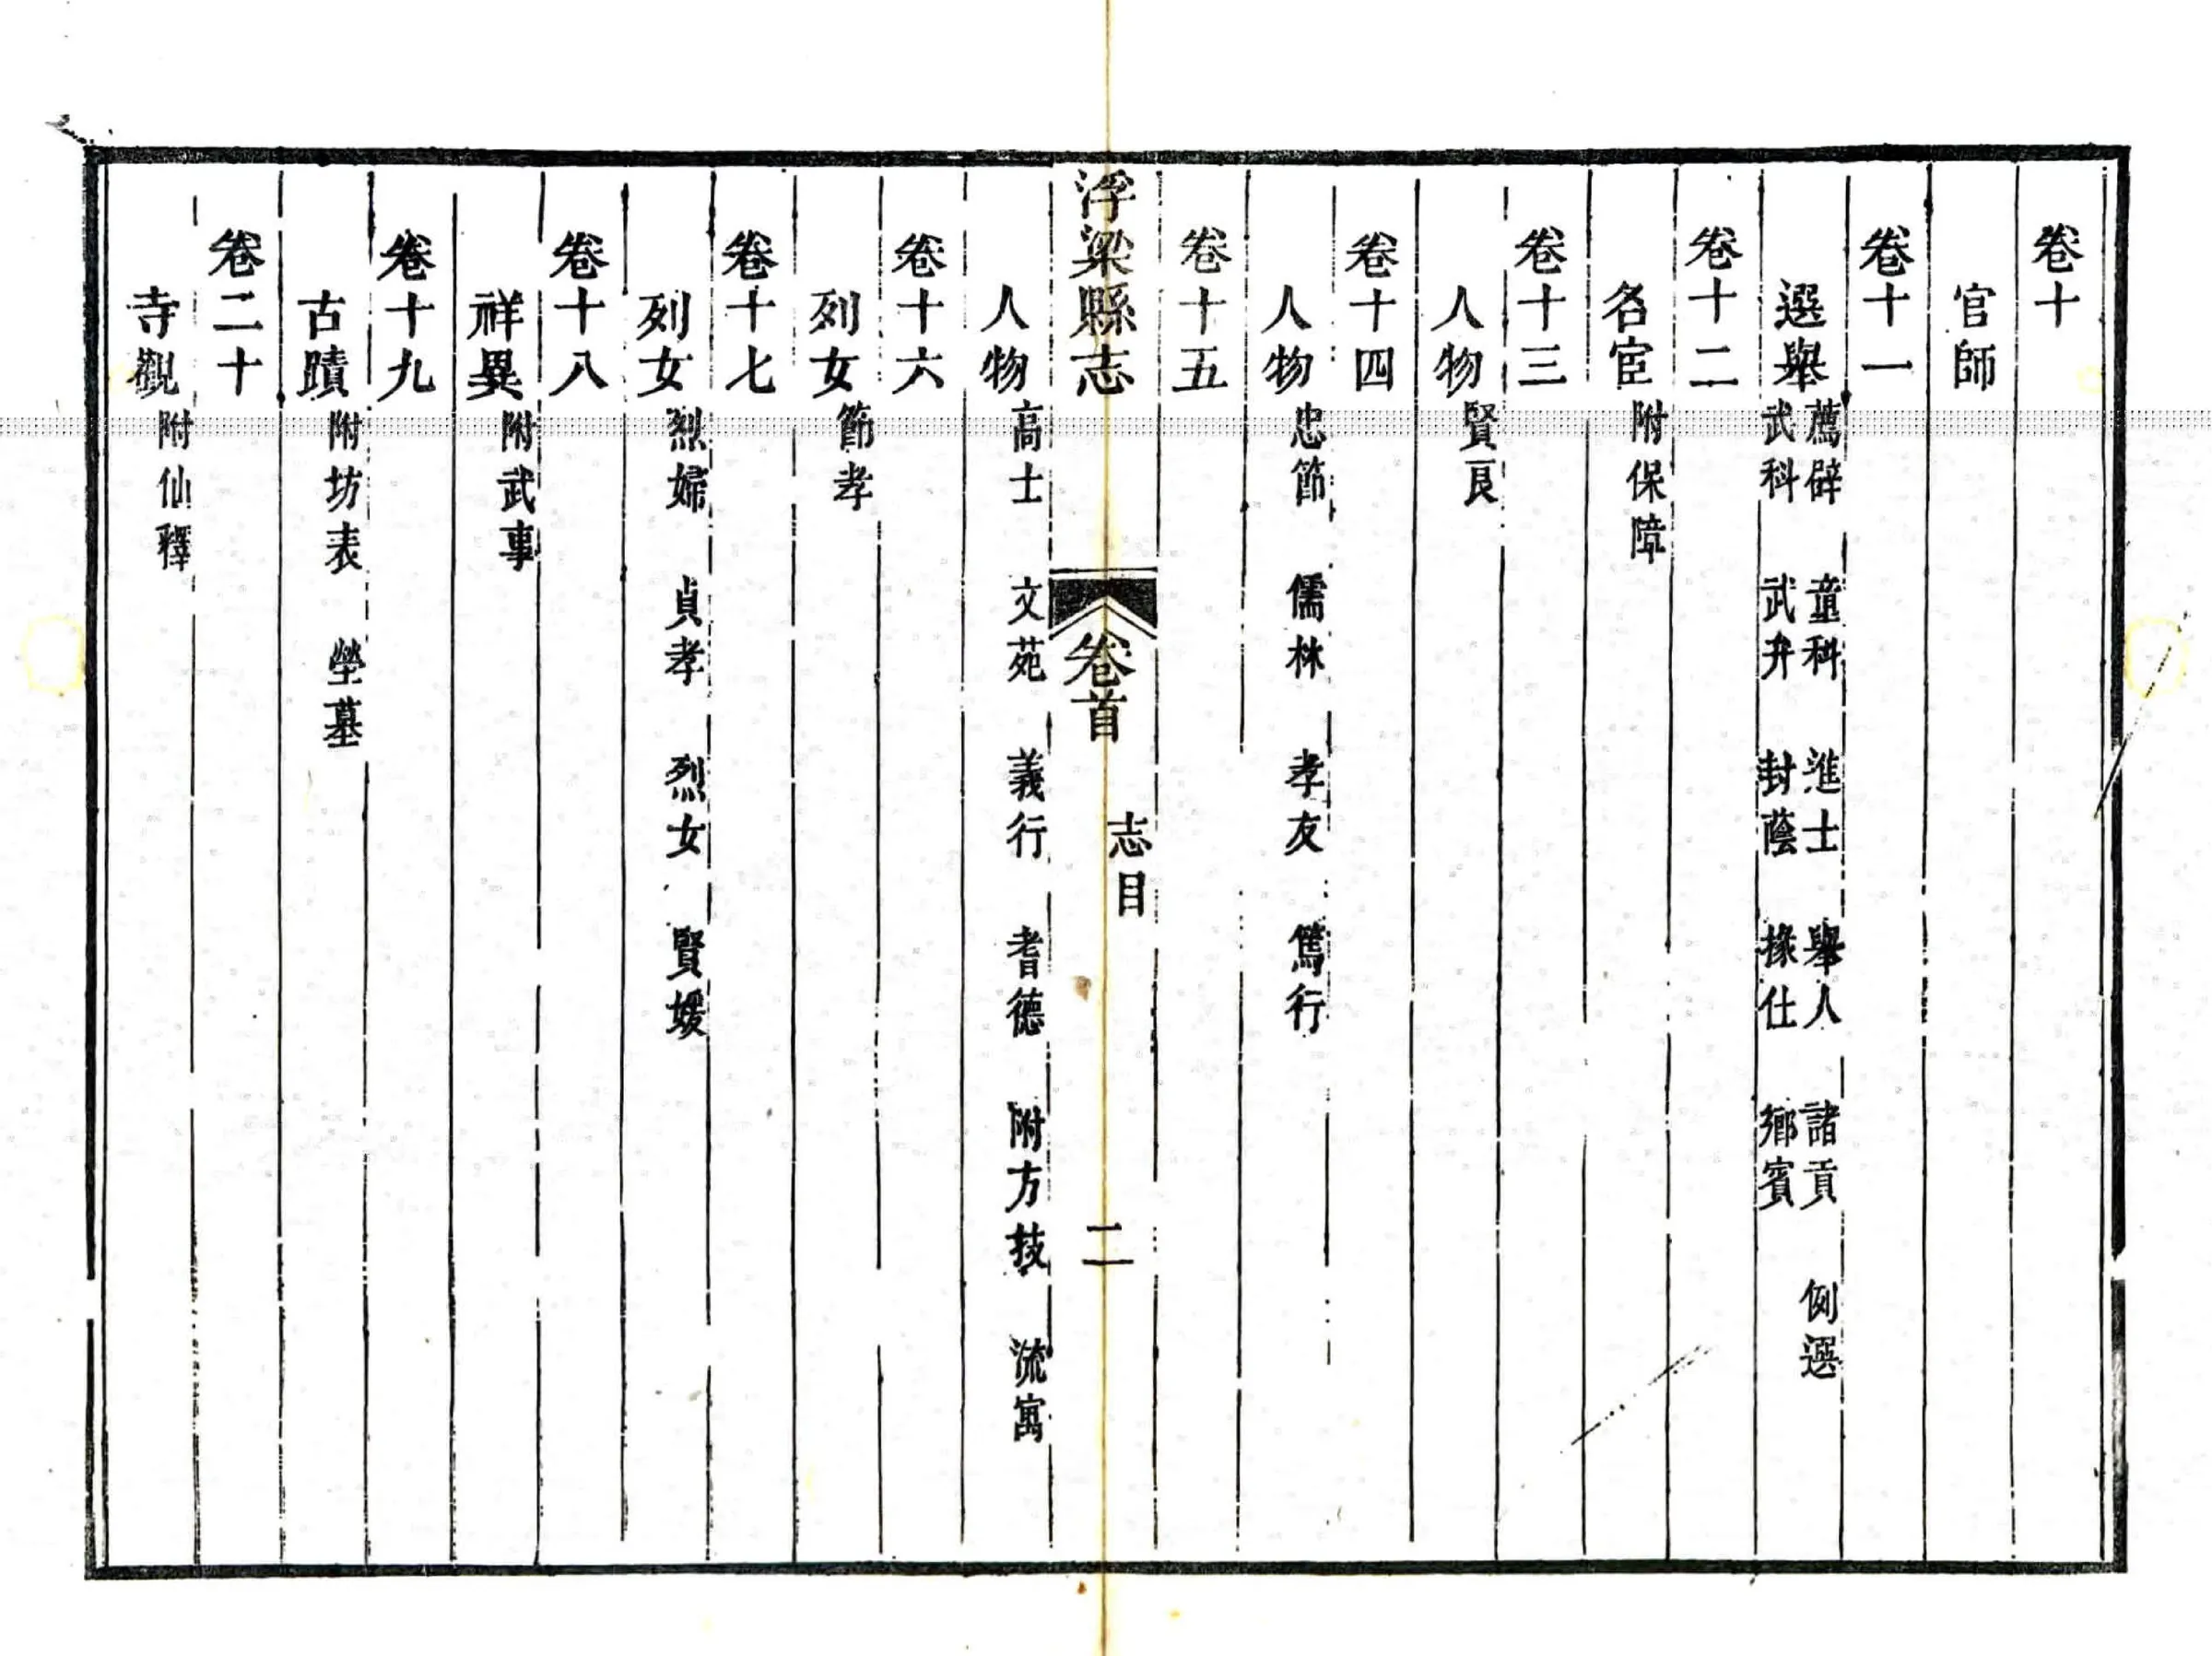 卷十
官師
卷十一
選舉 薦辟 童科 進士 舉人 諸貢 例選
武科 武弁 封蔭 掾仕 鄉賓
卷十二
名宦 附保障
卷十三
人物 賢良
卷十四
人物 忠節 儒林 孝友 篤行
卷十五
浮梁縣志 卷首 志目 二
人物 高士 文苑 義行 耆德 附方技 流寓
卷十六
列女 節孝
卷十七
列女 烈婦 貞孝 烈女 賢媛
卷十八
祥異 附武事
卷十九
古蹟 附坊表 塋墓
卷二十
寺觀 附仙釋